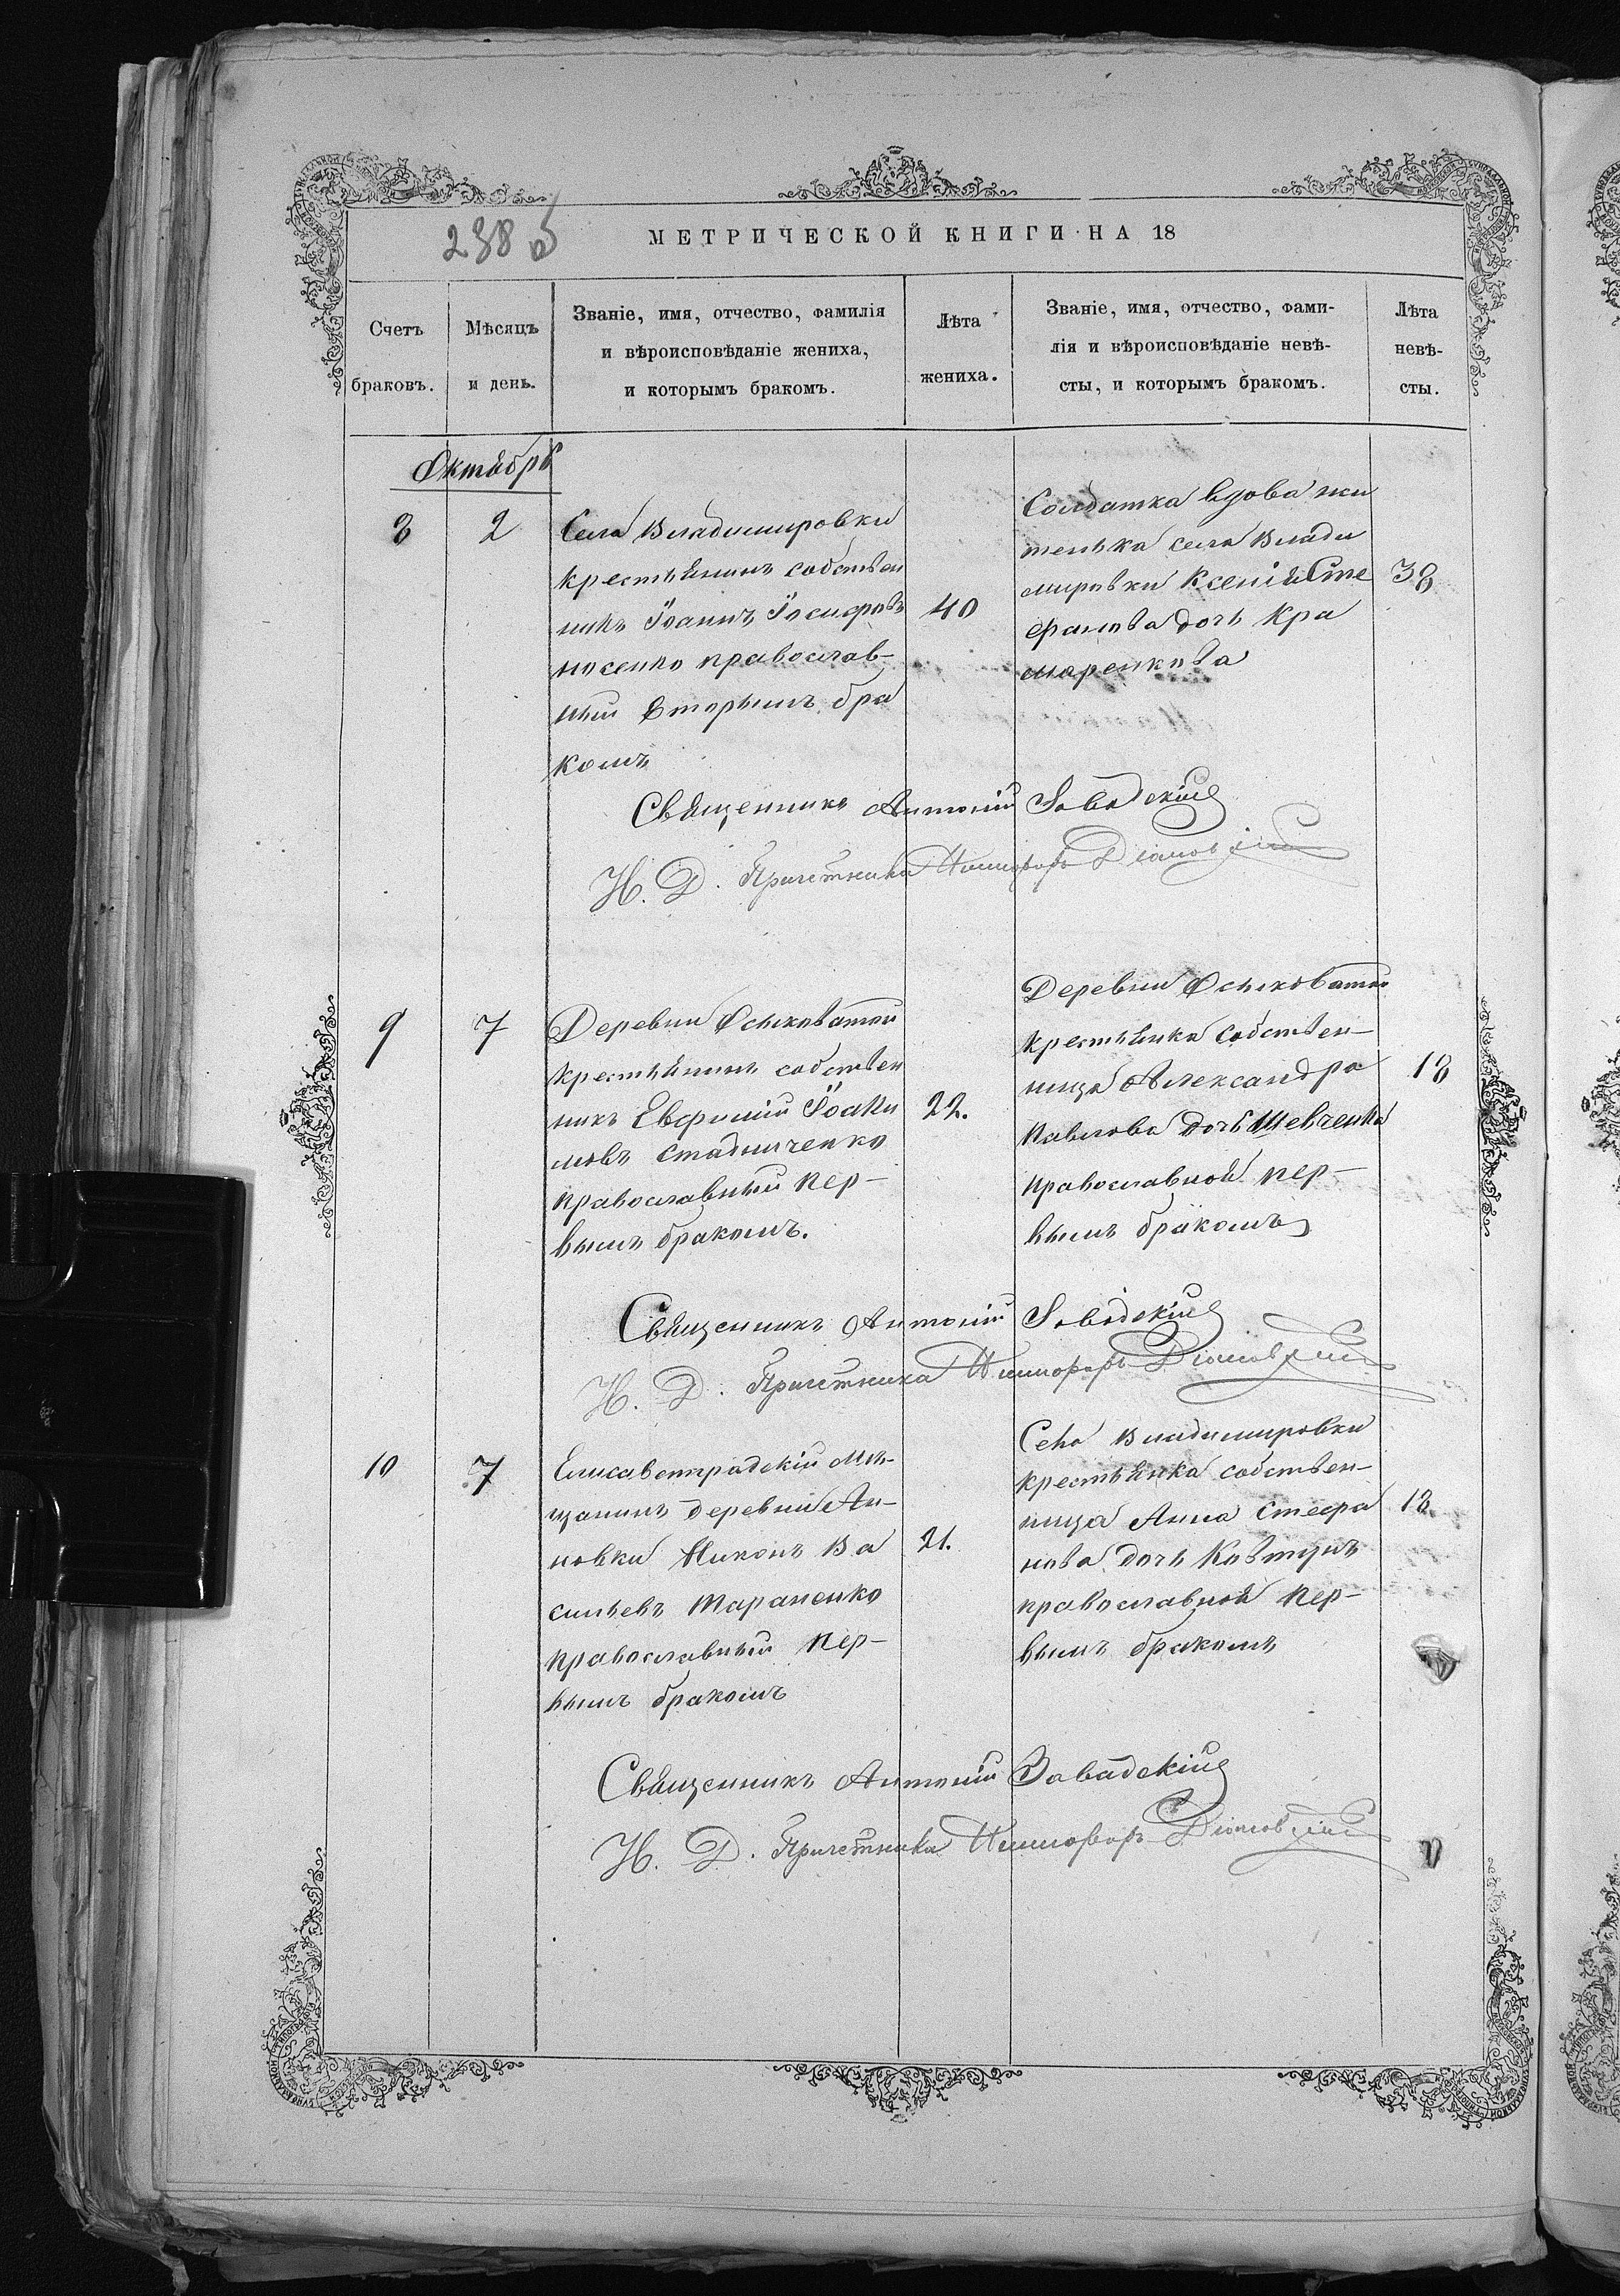 238 об
МЕТРИЧЕСКОЙ КНИГИ НА 18
Счетъ браковъ.
Мѣсяцъ и день.
Званіе, имя, отчество, фамилія
и вѣроисповѣданіе жениха,
и которымъ бракомъ.
Лѣта
жениха.
Званіе, имя, отчество, фами-
лія и вѣроисповѣданіе невѣ-
сты, и которымъ бракомъ.
Лѣта
невѣ-
сты.
Октябрь
8
2
Села Владимировки
крестьянинъ собствен
никъ Іоаннъ Іосифовъ
Носенко православ-
ный вторымъ бра
комъ
40
Солдатка вдова жи
телька села Влади
мировки Ксенія Сте
фанова дочь Кра
маренкова
38
Священникъ Антоній Завадскій
И. Д. Причетника
9
7
Деревни Осиковатой
крестьянинъ собствен
никъ Евфимій Іоаки
мовъ Стадниченко
православный пер-
вымъ бракомъ.
22.
Деревни Осиковатой
крестьянка собствен-
ница Александра
Павлова дочь Шевченко
православной пер-
вымъ бракомъ
18
Священникъ Антоній Завадскій
И. Д. Причетника
10
7
Елисаветградскій мѣ-
щанинъ деревни Ан-
новки Никонъ Ва
сильевъ Тараненко
православный пер-
вымъ бракомъ
21.
Села Владимировки
крестьянка собствен-
ница Анна Стефа
нова дочь Ковтунъ
православной пер-
вымъ бракомъ
18
Священникъ Антоній Завадскій
И. Д. Причетника